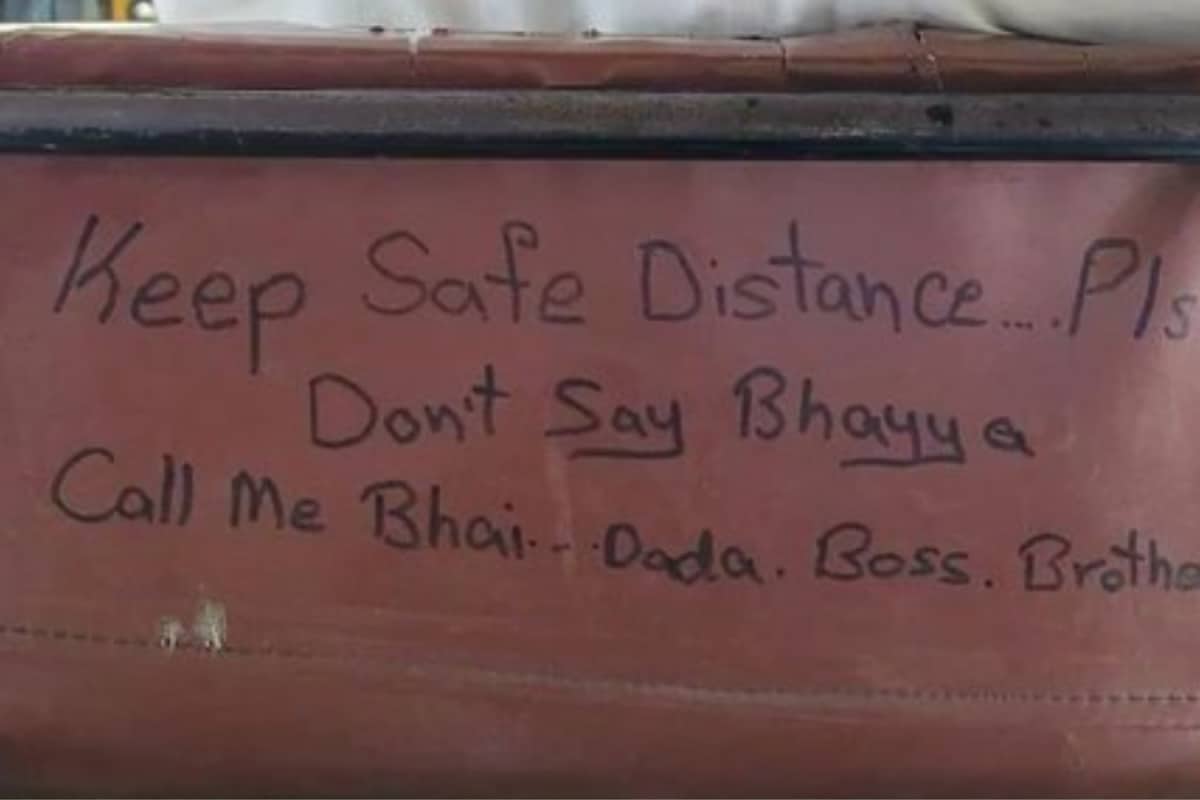 Keep Safe Distance.... Pls
Don't Say Bhayya
Call Me Bhai... Dada. Boss. Brothe